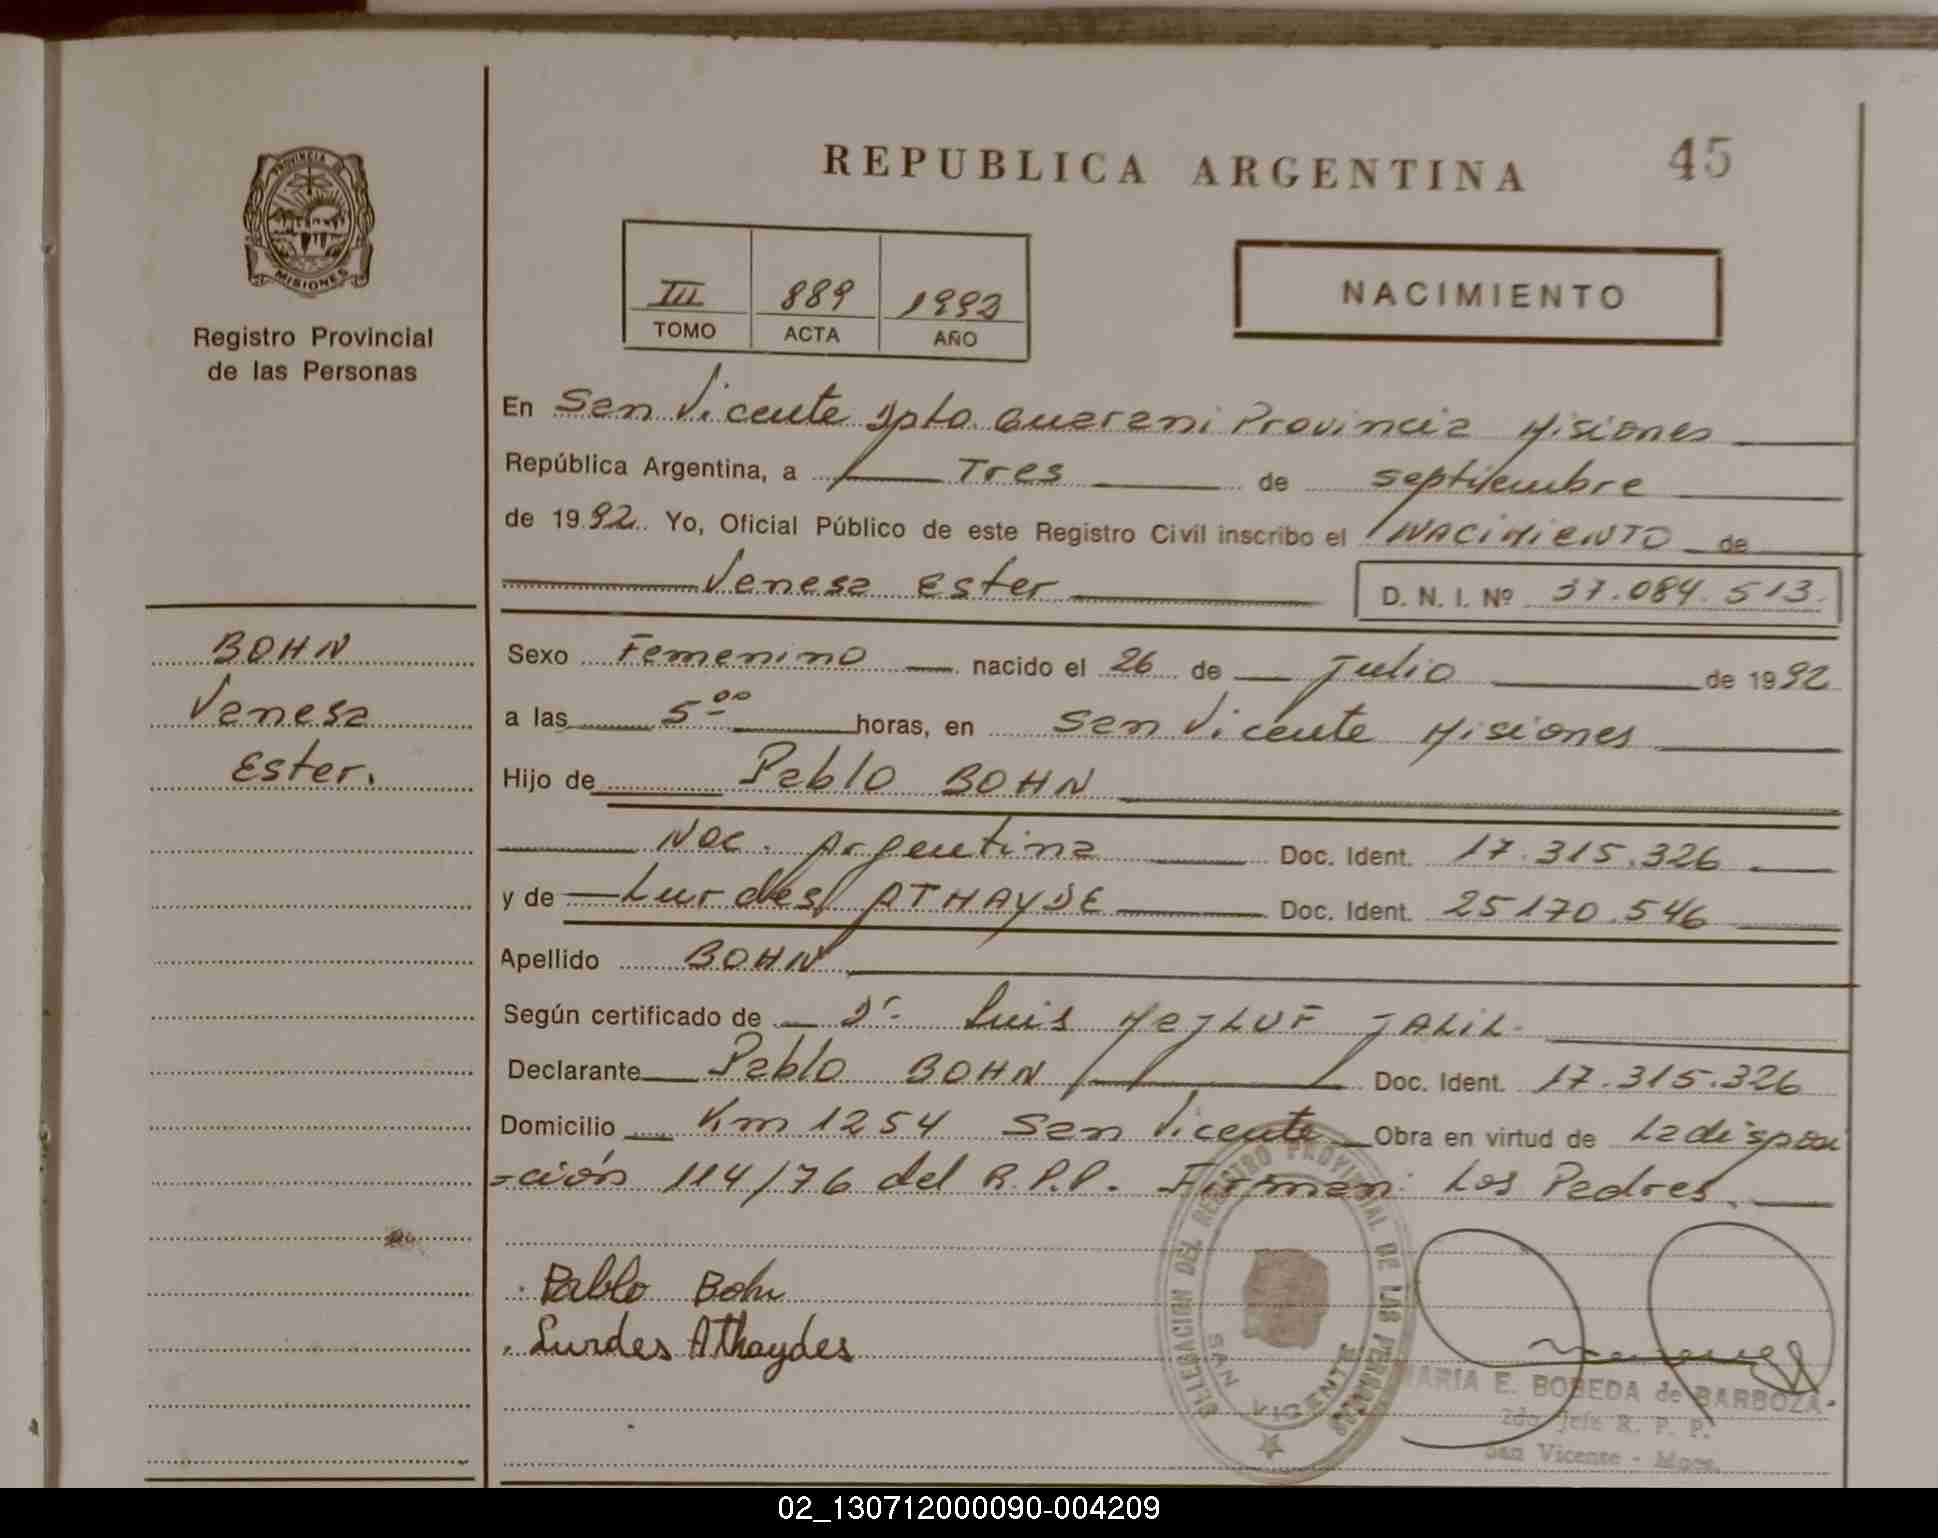 REPUBLICA ARGENTINA
45
PROVINCIA DE
MISIONES
Registro Provincial
de las Personas
III 889 1992
TOMO ACTA AÑO
NACIMIENTO
En San Vicente Dpto. Guarani Provincia Misiones
República Argentina, a Tres de septiembre
de 1992. Yo, Oficial Público de este Registro Civil inscribo el NACIMIENTO de
Vanesa Ester D. N. I. Nº 37.084.513.
BOHN
Vanesa
Ester.
Sexo Femenino nacido el 26 de Julio de 1992
a las 5 00 horas, en San Vicente Misiones
Hijo de Pablo BOHN
Nac. Argentina Doc. Ident. 17.315.326
y de Lurdes ATHAYDE Doc. Ident. 25170.546
Apellido BOHN
Según certificado de Dr. Luis JALIL
Declarante Pablo BOHN Doc. Ident. 17.315.326
Domicilio Km 1254 San Vicente Obra en virtud de La disposi
-ción 114/76 del R.P.P. Firman Los Padres.
Pablo Bohn
Lurdes Athaydes
DELEGACION DEL REGISTRO PROVINCIAL DE LAS PERSONAS
SAN VICENTE
MARIA E. BOBEDA de BARBOZA
2do. Jefe R. P. P.
San Vicente - Mnes.
02_130712000090-004209